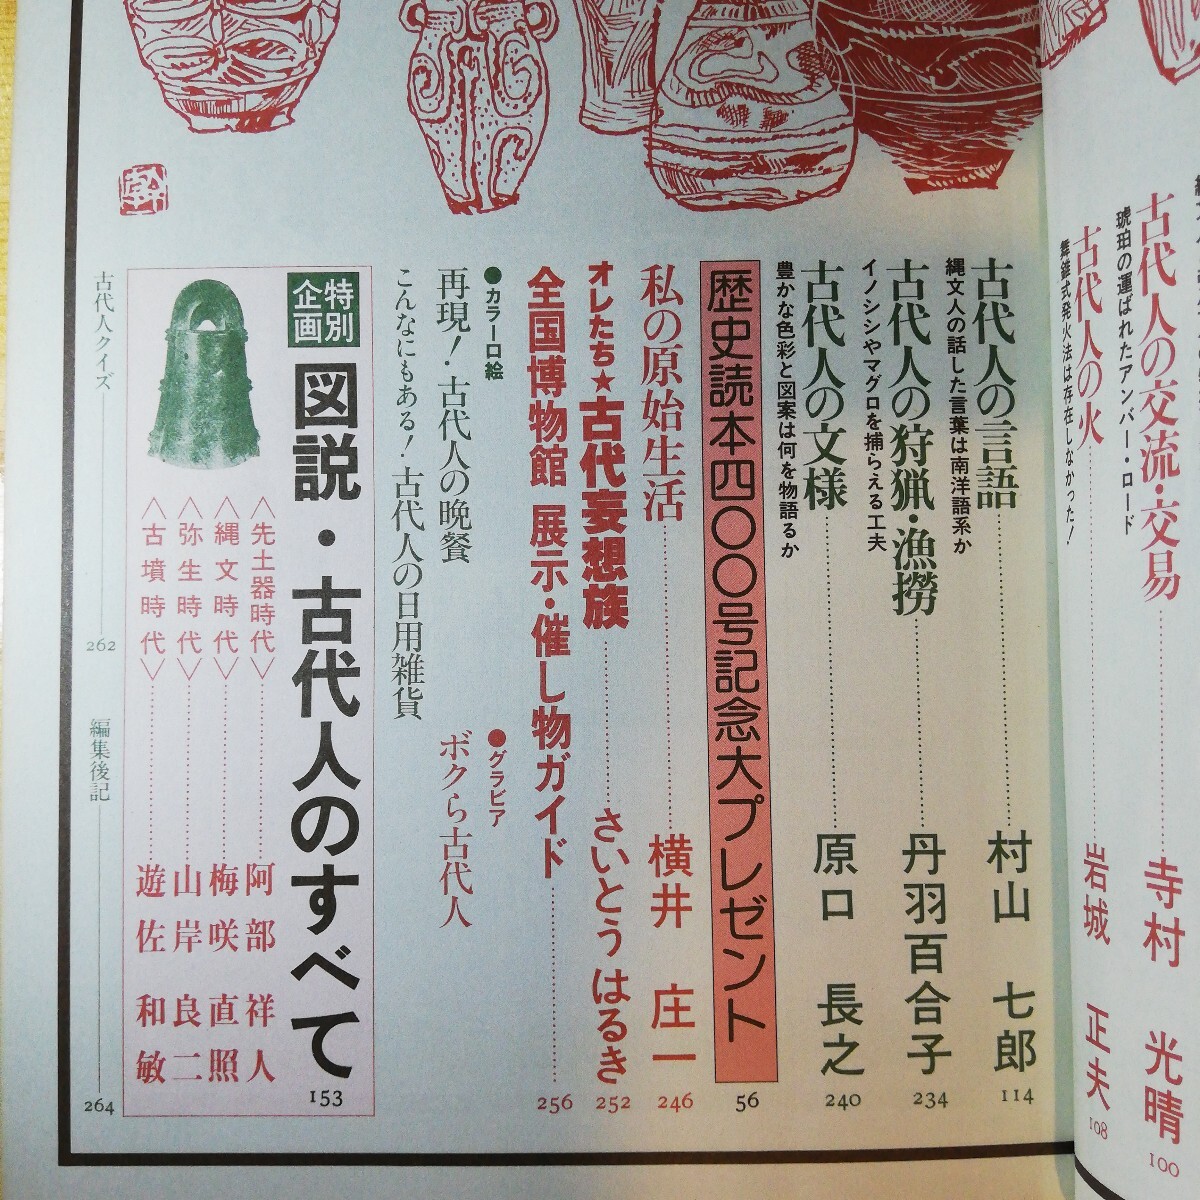 古代人の交流・交易
琥珀の運ばれたアンバー・ロード
寺村 光晴
100
古代人の火
舞錐式発火法は存在しなかった!
岩城 正夫
108
古代人の言語
縄文人の話した言葉は南洋語系か
村山 七郎
114
古代人の狩猟・漁撈
イノシシやマグロを捕らえる工夫
丹羽百合子
234
古代人の文様
豊かな色彩と図案は何を物語るか
原口 長之
240
歴史読本四〇〇号記念大プレゼント
56
私の原始生活
横井 庄一
246
オレたち★古代妄想族
さいとう はるき
252
全国博物館 展示・催し物ガイド
256
●カラー口絵
再現!・古代人の晩餐
こんなにもある!古代人の日用雑貨
●グラビア
ボクら古代人
特別企画
図説・古代人のすべて
153
〈先土器時代〉
阿部 祥人
〈縄文時代〉
梅咲 直照
〈弥生時代〉
山岸 良二
〈古墳時代〉
遊佐 和敏
古代人クイズ
262
編集後記
264